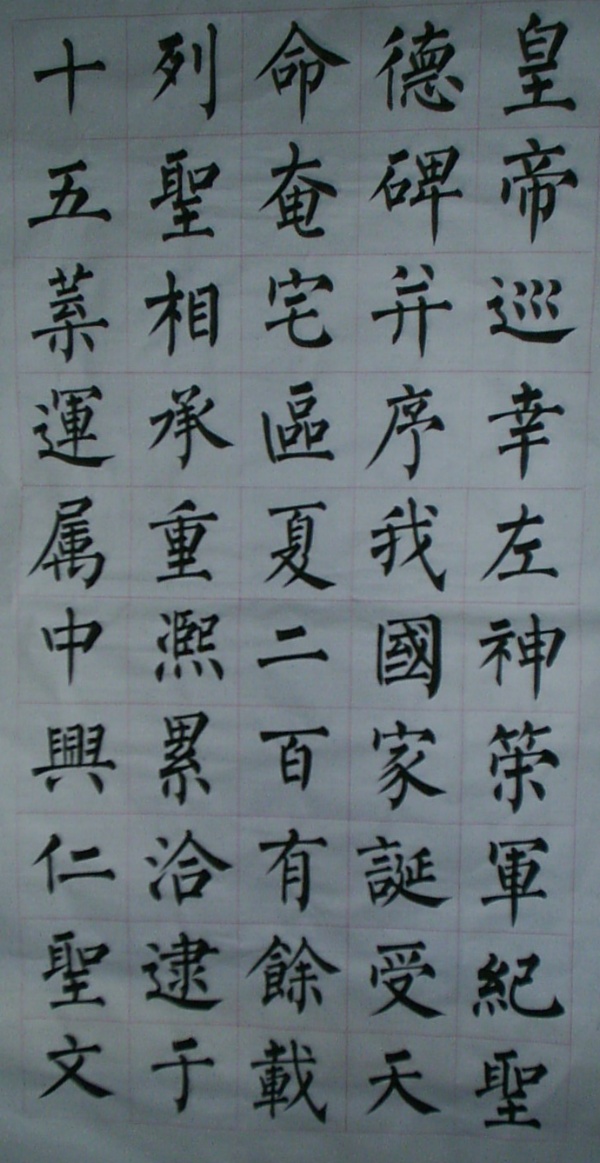 皇帝巡幸左神策軍紀聖
德碑并序我國家誕受天
命奄宅區夏二百有餘載
列聖相承重熙累洽逮于
十五葉運属中興仁聖文